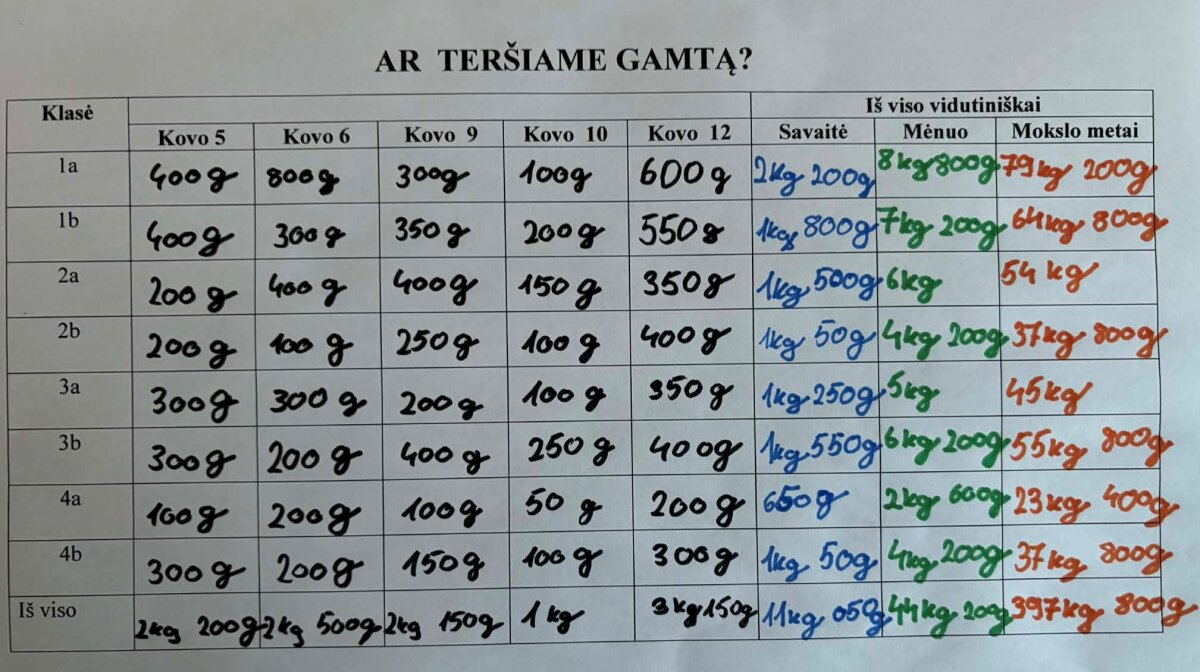 AR TERŠIAME GAMTĄ?
Klasė Iš viso vidutiniškai
Kovo 5 Kovo 6 Kovo 9 Kovo 10 Kovo 12 Savaitė Mėnuo Mokslo metai
1a 400 g 800 g 300g 100g 600 g 2kg 200g 8 kg 800g 79 kg 200g
1b 400 g 300 g 350 g 200 g 550 g 1kg 800g 7kg 200g 64 kg 800g
2a 200 g 400 g 400g 150 g 350 g 1kg 500g 6kg 54 kg
2b 200 g 100 g 250 g 100 g 400 g 1kg 50g 4kg 200g 37kg 800g
3a 300 g 300 g 200 g 100 g 350 g 1kg 250g 5kg 45kg
3b 300 g 200 g 400 g 250 g 400g 1kg 550g 6kg 200g 55kg 800g
4a 100 g 200 g 100 g 50 g 200 g 650g 2kg 600g 23 kg 400g
4b 300 g 200 g 150 g 100 g 300 g 1kg 50g 4kg 200g 37 kg 800g
Iš viso 2kg 200g 2kg 500g 2kg 150g 1 kg 3 kg 150g 11kg 050g 44kg 20g 397kg 800g